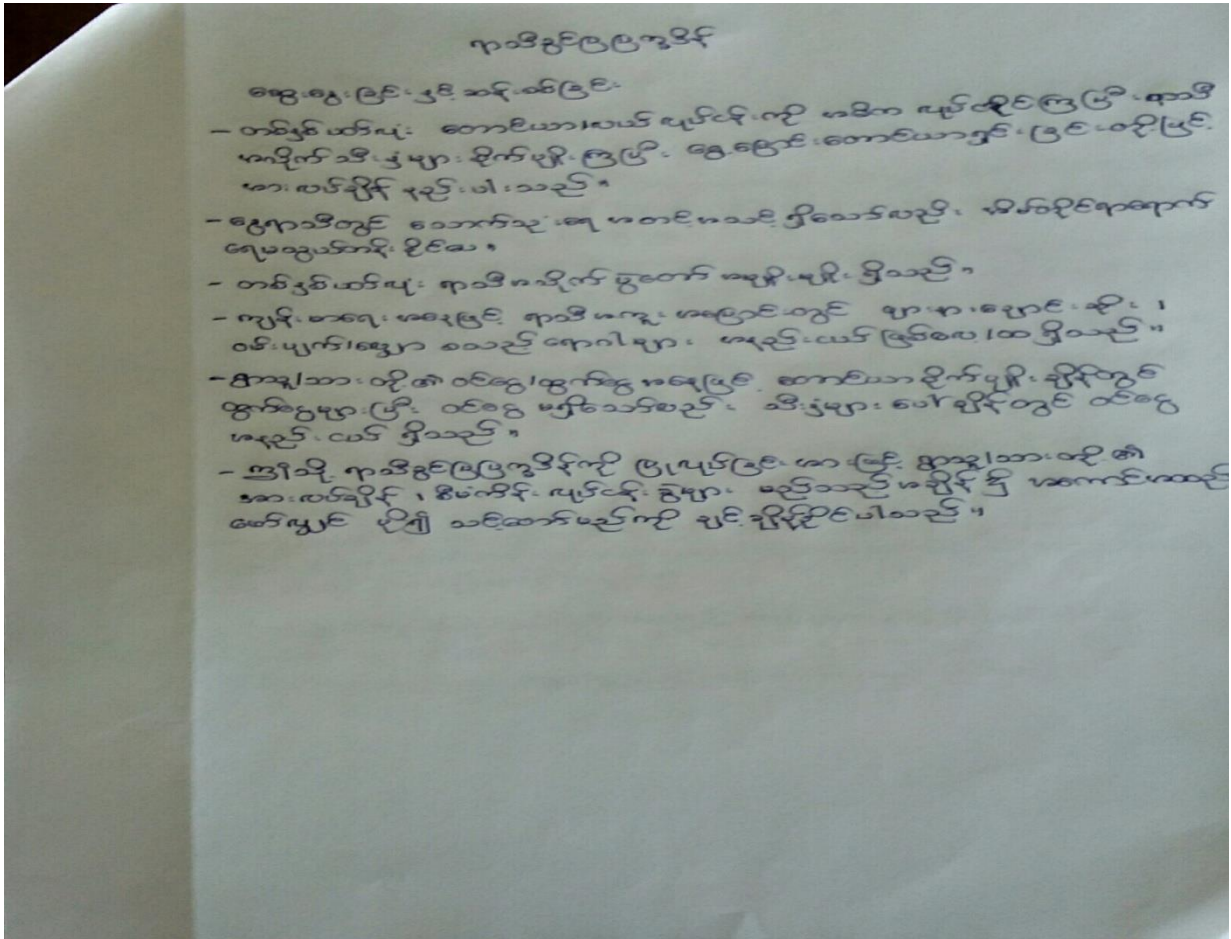 ရာသီခွင်ပြပြက္ခဒိန်
ဆွေးနွေးခြင်းနှင့်ဆန်းစစ်ခြင်း
- တစ်နှစ်ပတ်လုံး တောင်ယာ၊လယ်လုပ်ငန်းကို အဓိက လုပ်ကိုင်ကြပြီး ရာသီ
အလိုက်သီးနှံများ စိုက်ပျိုးကြပြီး ရွှေ့ပြောင်းတောင်ယာ ခြင်းတို့ဖြင့်
အားလပ်ချိန် နည်းပါးသည်။
- နွေရာသီတွင် သောက်သုံးရေ အတင့်အသင့် ရှိသော်လည်း အိမ်တိုင်ရာရောက်
ရေမသွယ်တန်းနိုင်သေး။
- တစ်နှစ်ပတ်လုံး ရာသီအလိုက်ပွဲတော် အမျိုးမျိုး ရှိသည်။
- ကျန်းမာရေးအနေဖြင့် ရာသီအကူးအပြောင်းတွင် ဖျားနာချောင်းဆိုး၊
ဝမ်းပျက်၊လျှော စသည့်ရောဂါများ အနည်းငယ် ဖြစ်လေ့၊ထ ရှိသည်။
- ရွာသူ/သားတို့၏ ဝင်ငွေ/ထွက်ငွေအနေဖြင့် တောင်ယာစိုက်ပျိုးချိန်တွင်
ထွက်ငွေများပြီး ဝင်ငွေ မရှိသော်လည်း သီးနှံများပေါ်ချိန်တွင် ဝင်ငွေ
အနည်းငယ် ရှိသည်။
- ဤသို့ ရာသီခွင်ပြပြက္ခဒိန်ကို ပြုလုပ်ခြင်းအားဖြင့် ရွာသူ/သားတို့၏
အားလပ်ချိန်၊ စီမံကိန်းလုပ်ငန်းခွဲများ မည်သည့်အချိန်၌ အကောင်အထည်
ဖော်လျှင် ပို၍ သင့်တော်မည်ကို ချင့်ချိန်နိုင်ပါသည်။